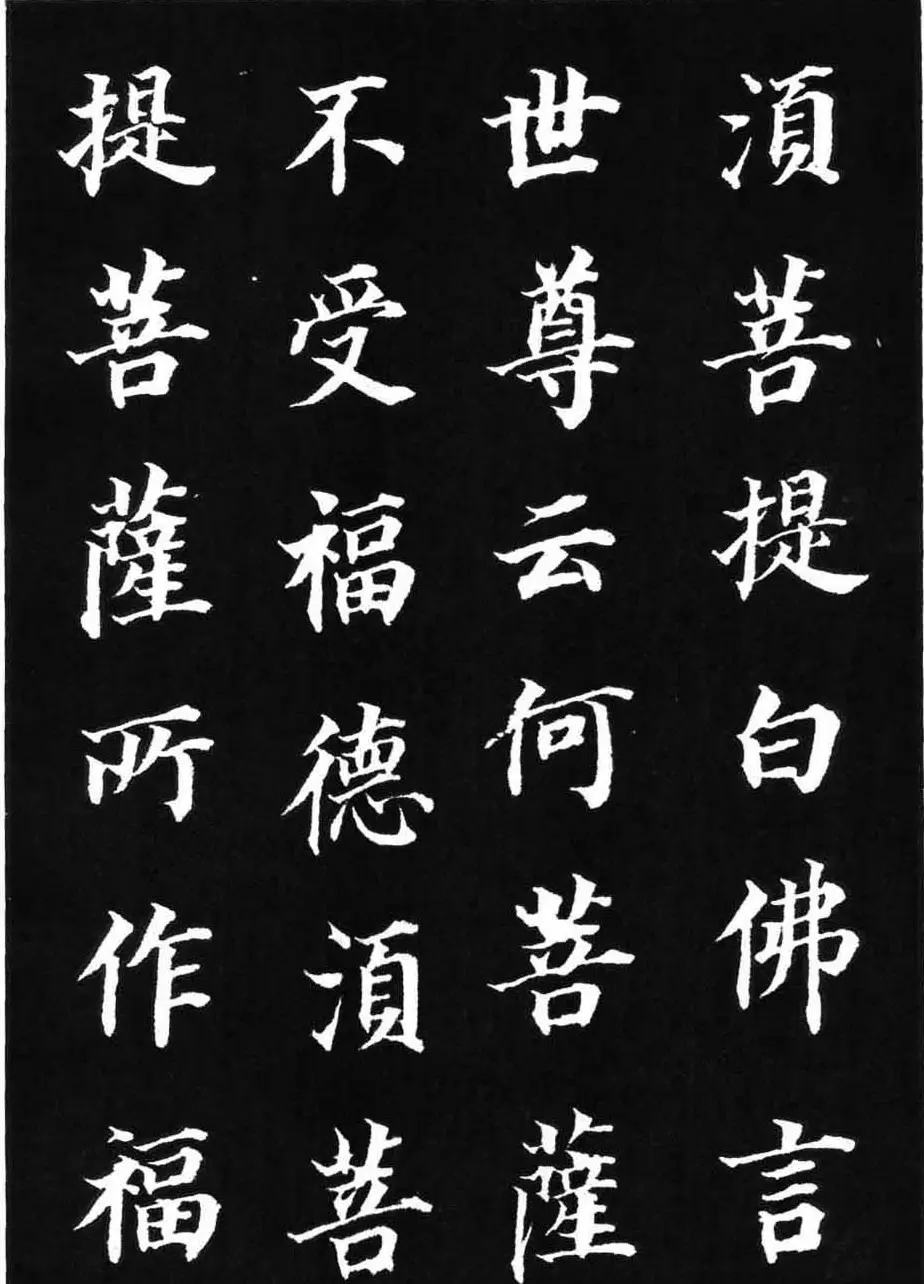 須菩提白佛言
世尊云何菩薩
不受福德須菩
提菩薩所作福